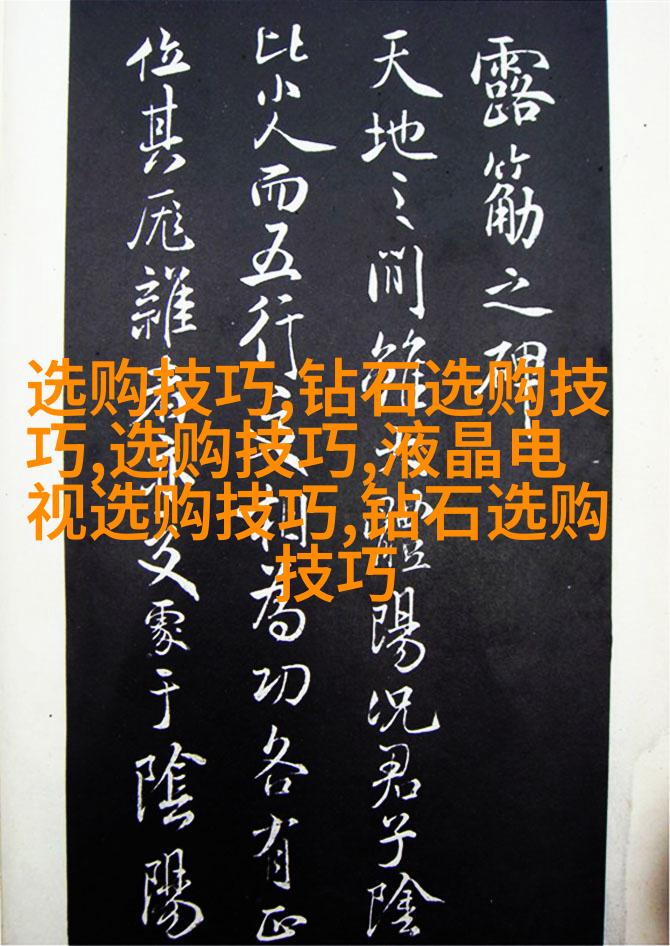 露筋之碑
天地之間雖體陽況君子陰
比小人而五行更相為功各有正
位其厖雜者交處于陰陽
选购技巧,钻石选购技
巧,选购技巧,液晶电
视选购技巧,钻石选购
技巧